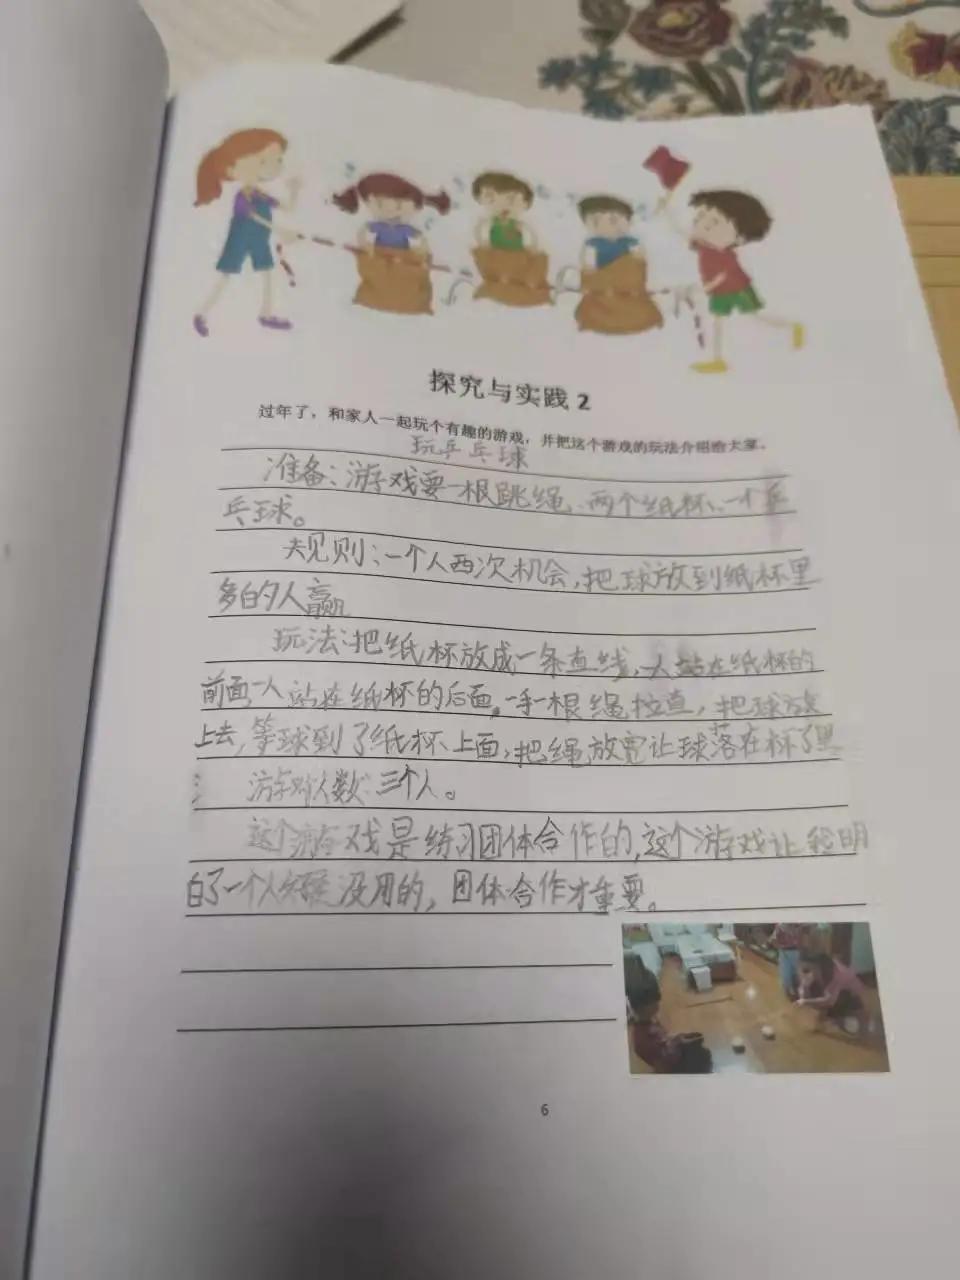 探究与实践2
过年了，和家人一起玩个有趣的游戏，并把这个游戏的玩法介绍给大家。
玩乒乓球
准备：游戏要一根跳绳、两个纸杯、一个乒
乓球。
规则：一个人两次机会，把球放到纸杯里
多的人赢
玩法：把纸杯放成一条直线，一人站在纸杯的
前面一人站在纸杯的后面，一手一根绳拉直，把球放
上去，等球到了纸杯上面，把绳放宽让球落在杯子里
游戏人数：三个人。
这个游戏是练习团体合作的，这个游戏让我明
白了一个人是没用的，团体合作才重要。
6